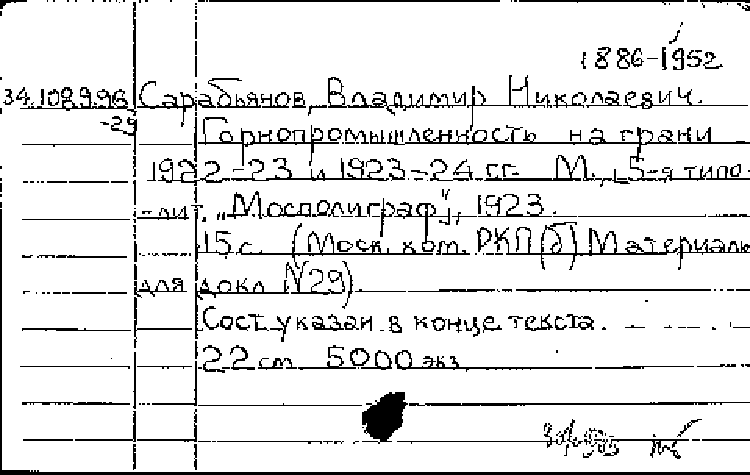 1886-1952
34.10899.96 Сарабьянов, Владимир Николаевич.
-29 Горнопромышленность на грани
1922-23 и 1923-24 гг. М., [5-я типо-
-лит. „Мосполиграф"], 1923.
15 с. (Моск. ком. РКП(б) Материалы
для докл. N29).
Сост. указан в конце текста.
22 см. 5000 экз.